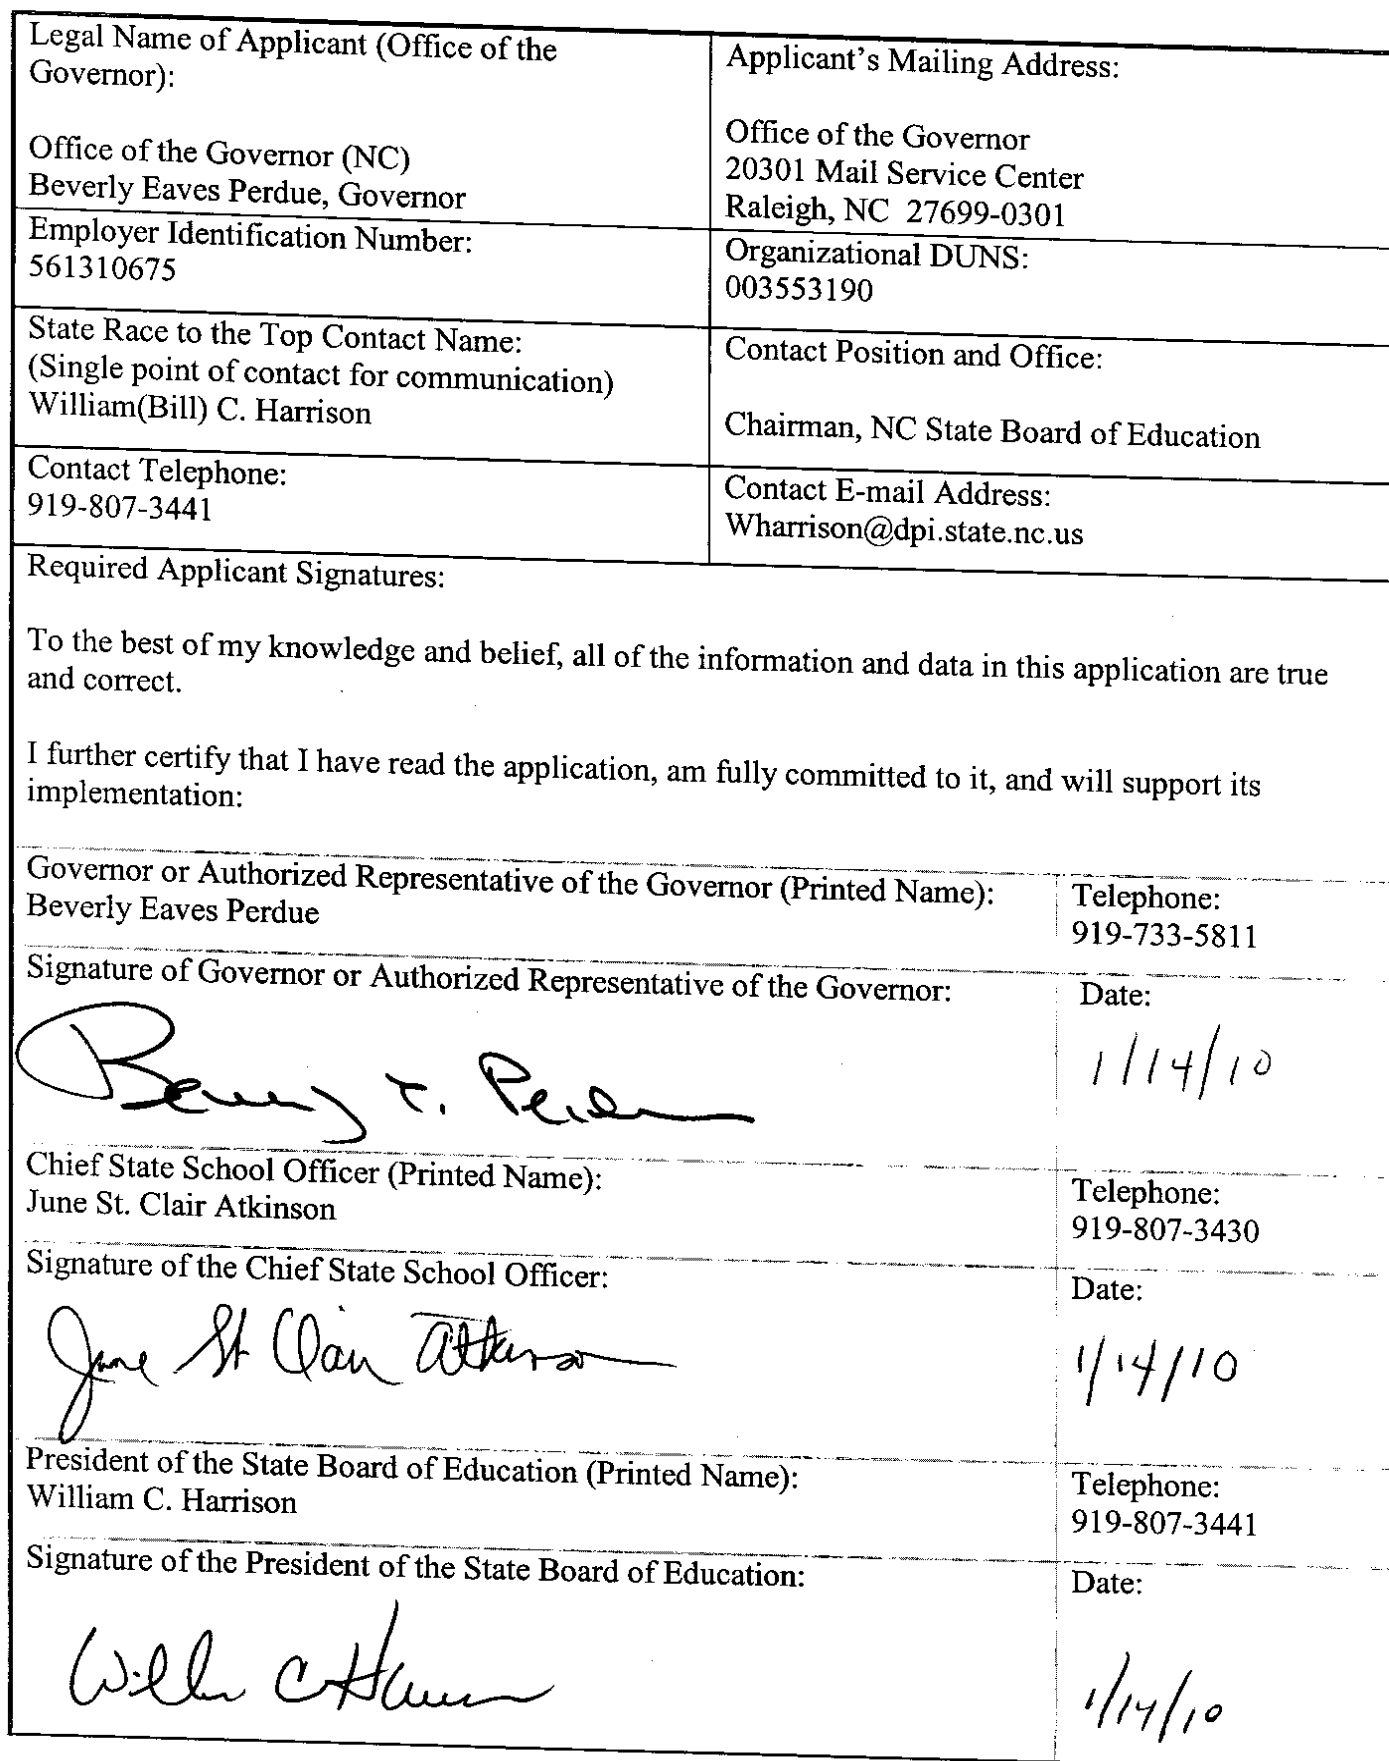 Legal Name of Applicant (Office of the
Governor):
Office of the Governor (NC)
Beverly Eaves Perdue, Governor
Applicant's Mailing Address:
Office of the Governor
20301 Mail Service Center
Raleigh, NC 27699-0301
Employer Identification Number:
561310675
Organizational DUNS:
003553190
State Race to the Top Contact Name:
(Single point of contact for communication)
William(Bill) C. Harrison
Contact Position and Office:
Chairman, NC State Board of Education
Contact Telephone:
919-807-3441
Contact E-mail Address:
Wharrison@dpi.state.nc.us
Required Applicant Signatures:
To the best of my knowledge and belief, all of the information and data in this application are true
and correct.
I further certify that I have read the application, am fully committed to it, and will support its
implementation:
Governor or Authorized Representative of the Governor (Printed Name):
Beverly Eaves Perdue
Telephone:
919-733-5811
Signature of Governor or Authorized Representative of the Governor:
Date:
1/14/10
Chief State School Officer (Printed Name):
June St. Clair Atkinson
Telephone:
919-807-3430
Signature of the Chief State School Officer:
June St Clair Atkinson
Date:
1/14/10
President of the State Board of Education (Printed Name):
William C. Harrison
Telephone:
919-807-3441
Signature of the President of the State Board of Education:
Date:
1/14/10